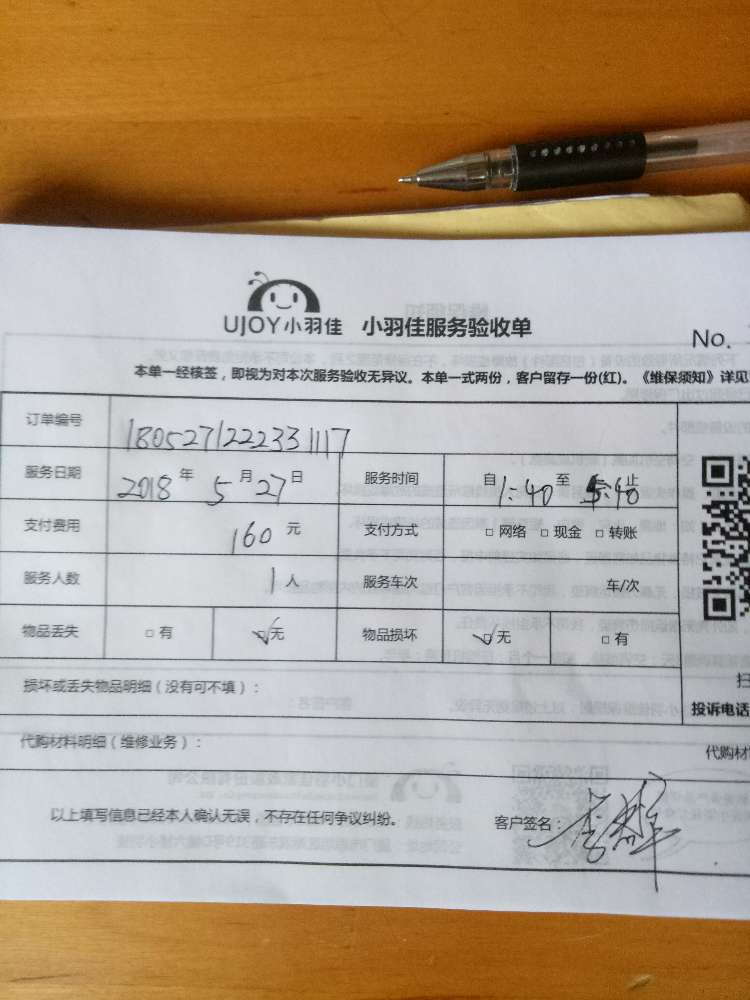 UJOY小羽佳 小羽佳服务验收单
No.
本单一经核签，即视为对本次服务验收无异议。本单一式两份，客户留存一份(红)。《维保须知》详见
订单编号 1805271222331117
服务日期 2018 年 5 月 27 日 服务时间 自 1:40 至 :40 止
支付费用 160 元 支付方式 □ 网络 □ 现金 □ 转账
服务人数 1 人 服务车次 车/次
物品丢失 □ 有 ☑无 物品损坏 ☑无 □ 有
损坏或丢失物品明细（没有可不填）：
投诉电话
代购材料明细（维修业务）： 代购材
以上填写信息已经本人确认无误，不存在任何争议纠纷。 客户签名：